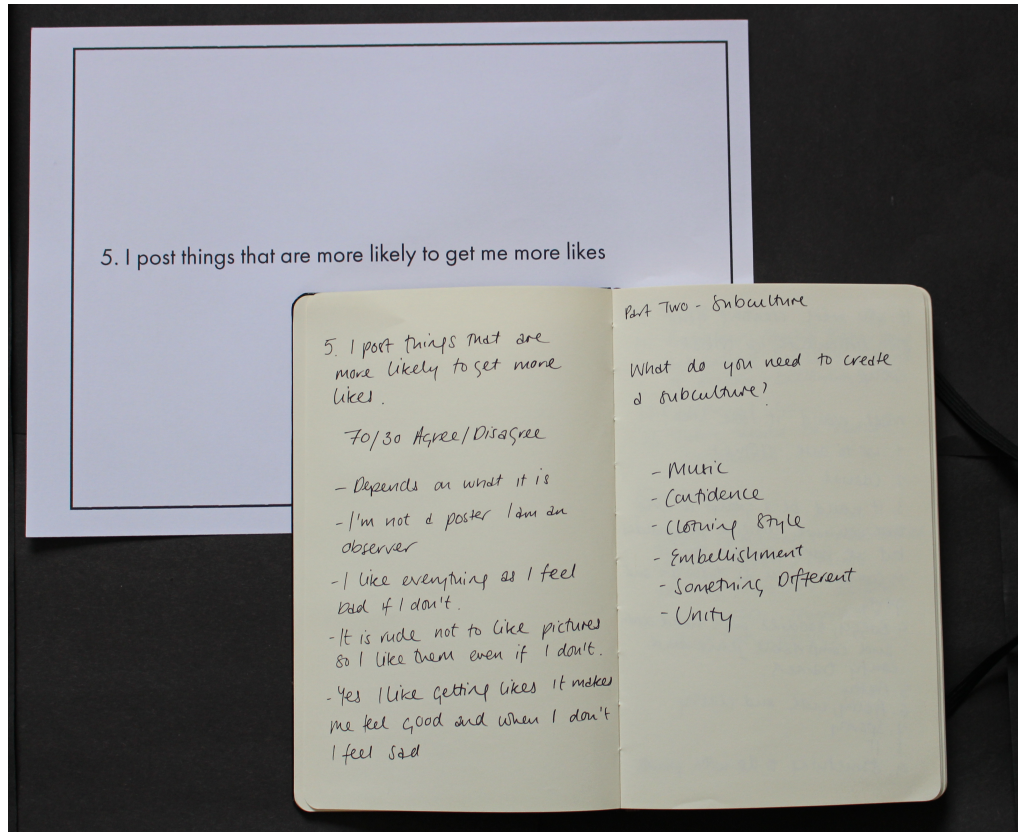 5. I post things that are more likely to get me more likes
5. I post things that are
more likely to get more
likes.
70/30 Agree/Disagree
- Depends on what it is
- I'm not a poster I am an
observer
- I like everything as I feel
bad if I don't.
- It is rude not to like pictures
so I like them even if I don't.
- Yes I like getting likes it makes
me feel good and when I don't
I feel sad
Part Two - Subculture
What do you need to create
a subculture?
- Music
- Confidence
- Clothing Style
- Embellishment
- Something Different
- Unity